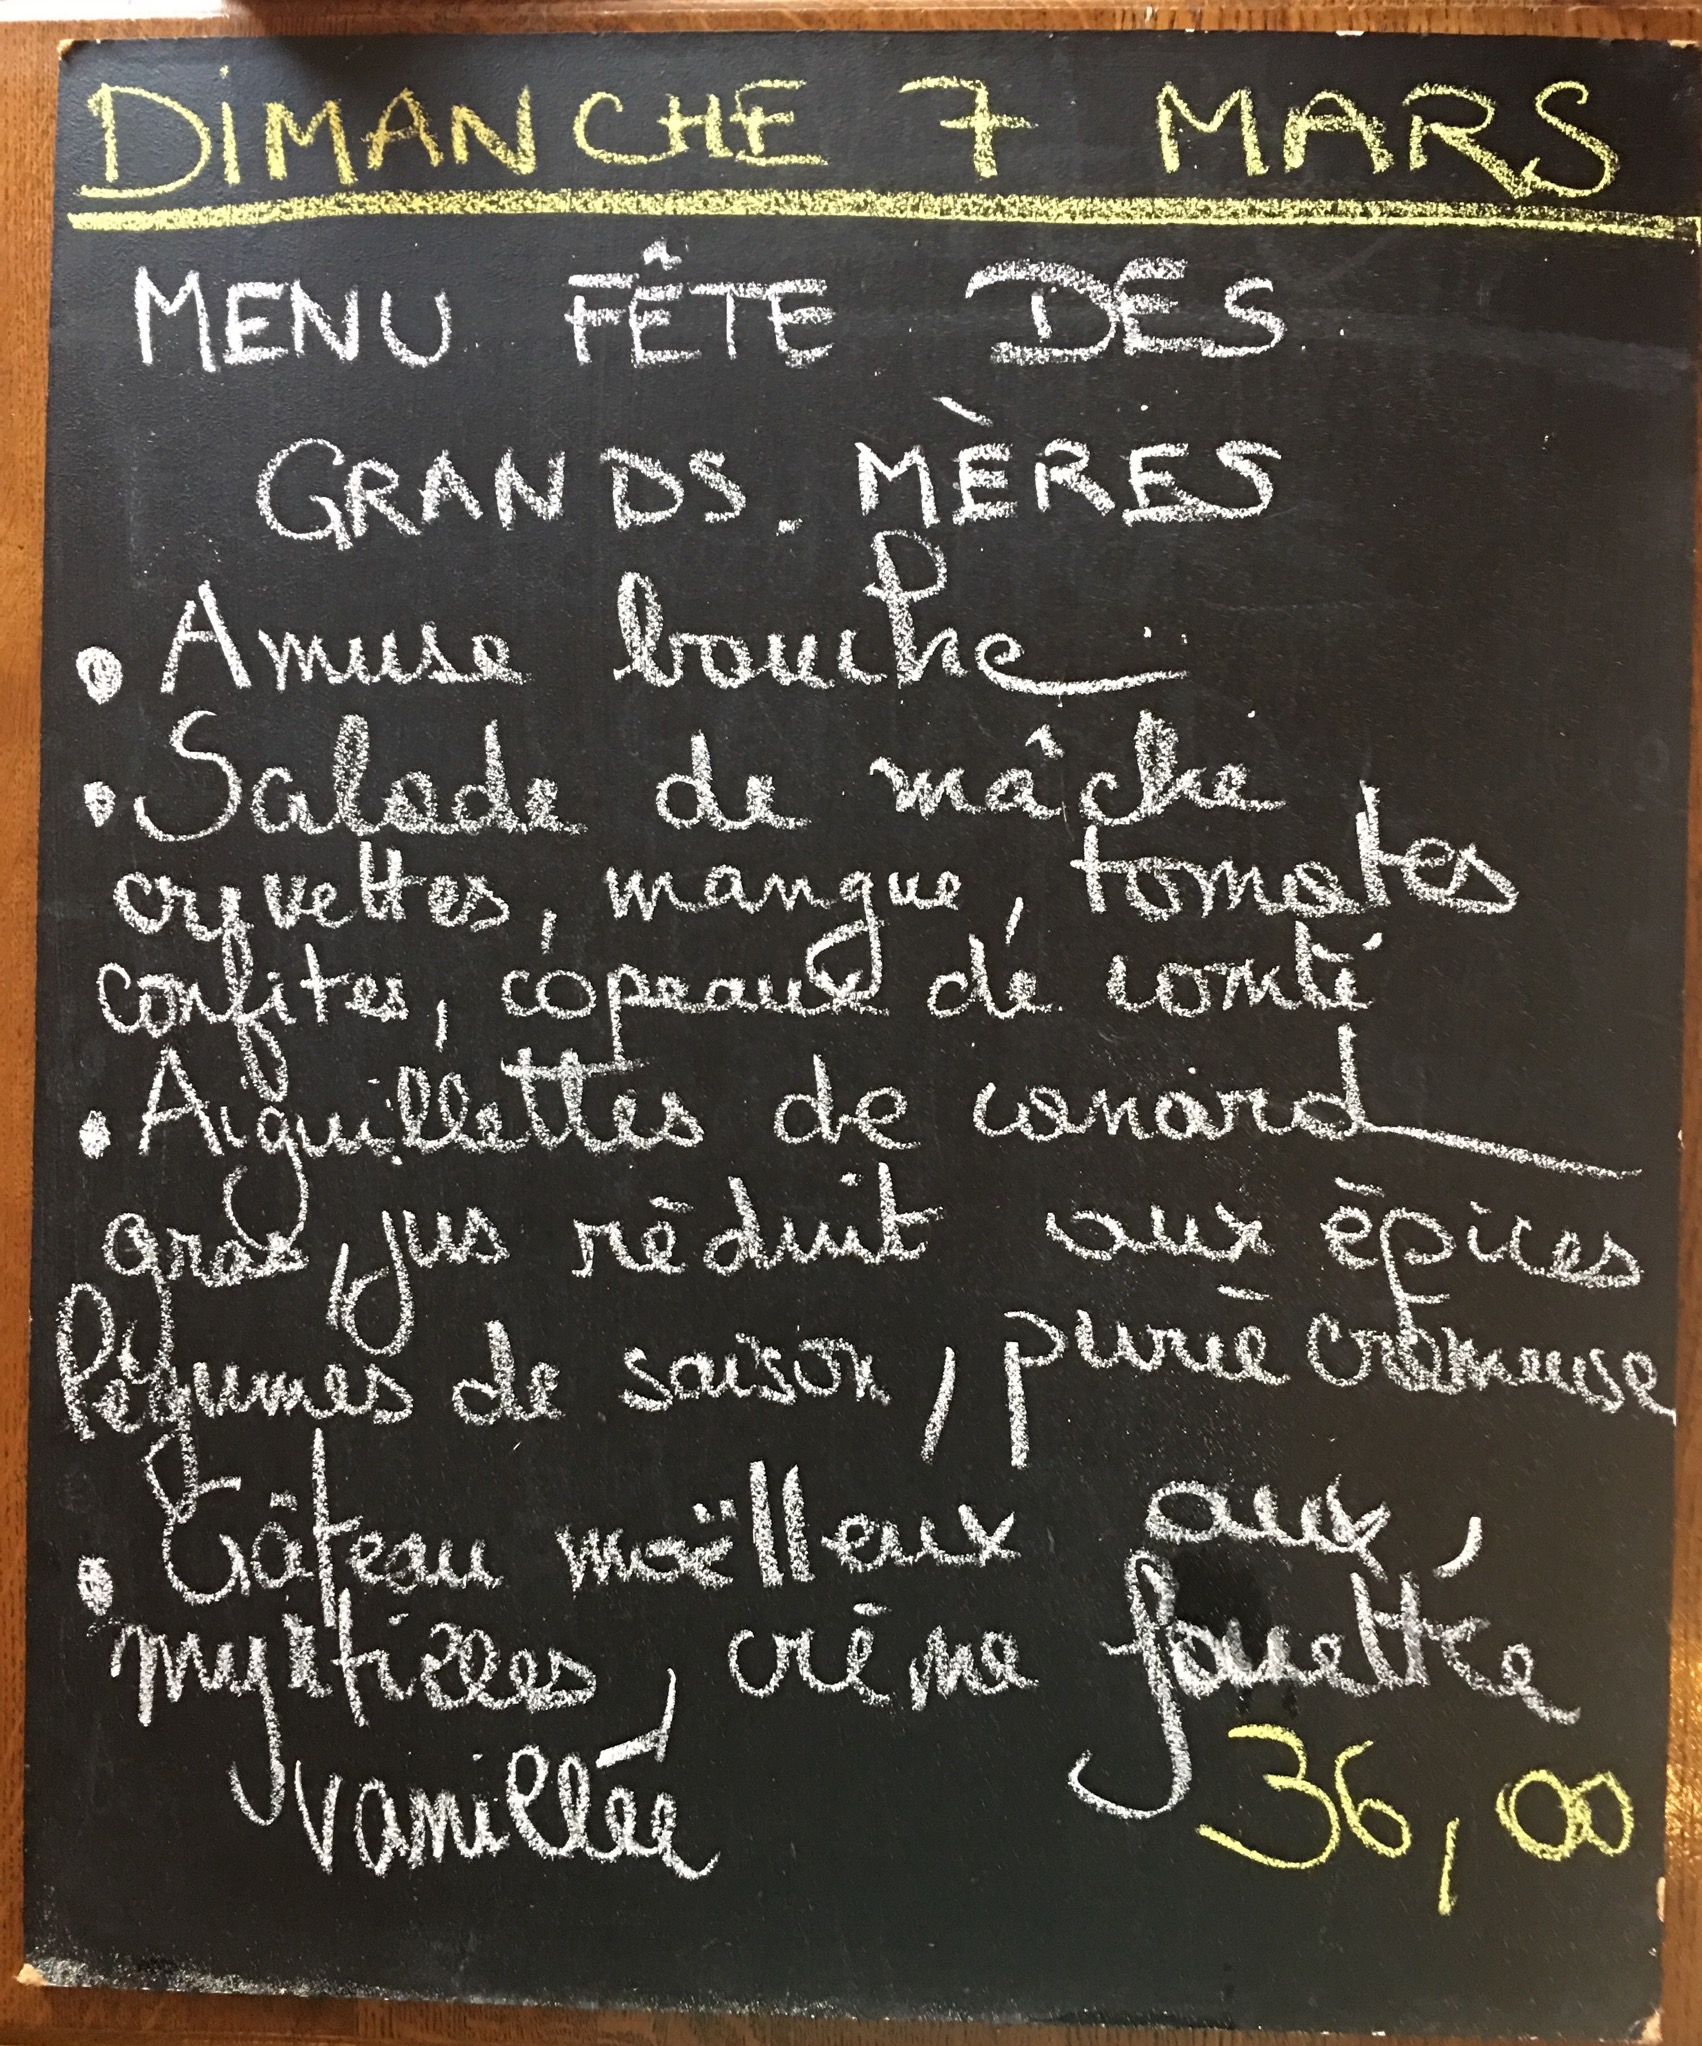 DIMANCHE 7 MARS
MENU FÊTE DES
GRANDS-MÈRES
• Amuse bouche
• Salade de mâche
crevettes, mangue, tomates
confites, copeaux de comté
• Aiguillettes de canard
gras, jus réduit aux épices
légumes de saison, purée crémeuse
• Gâteau moëlleux aux
myrtilles, crème fouettée
vanillée 36,00